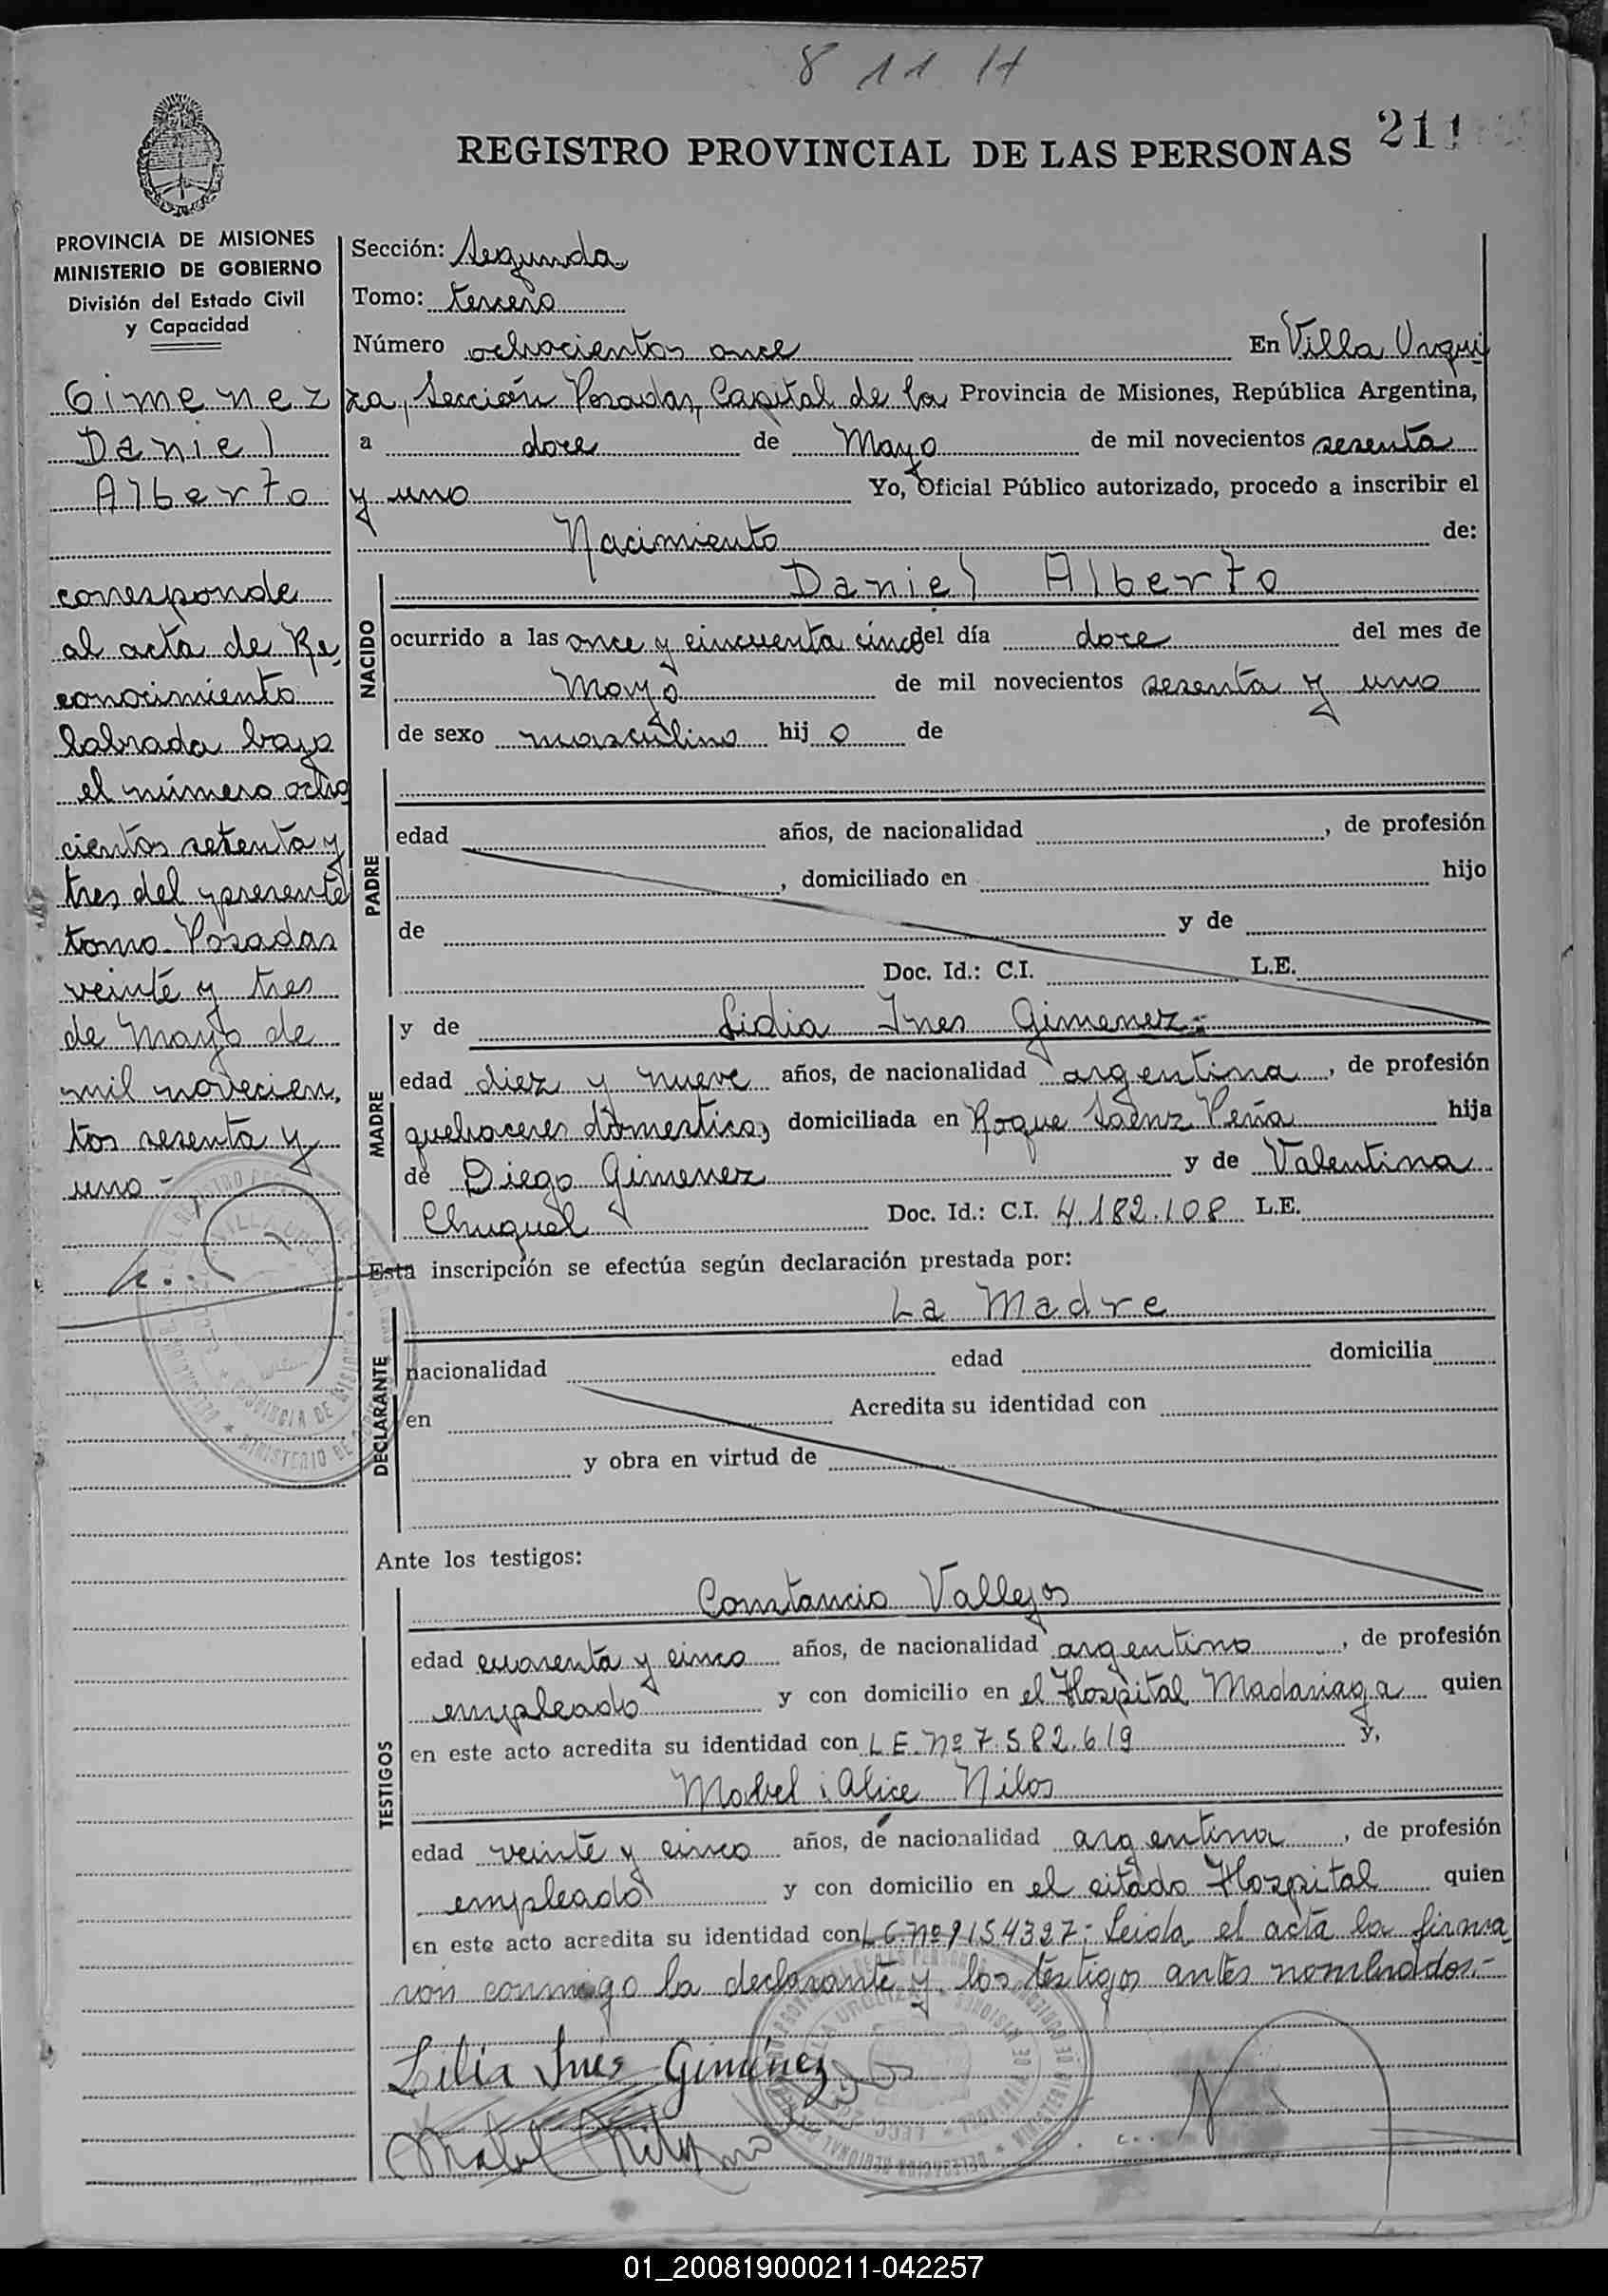 8 11 H
211
REGISTRO PROVINCIAL DE LAS PERSONAS
PROVINCIA DE MISIONES
MINISTERIO DE GOBIERNO
División del Estado Civil
y Capacidad
Gimenez
Daniel
Alberto
corresponde
al acta de Re,
conocimiento
labrada bajo
el número ocho
cientos setenta y
tres del presente
tomo. Posadas
veinte y tres
de Mayo de
mil novecien,
tos sesenta y
uno.-
Sección: Segunda
Tomo: tercero
Número ochocientos once En Villa Urqui
za, Sección Posadas, Capital de la Provincia de Misiones, República Argentina,
a doce de Mayo de mil novecientos sesenta
y uno Yo, Oficial Público autorizado, procedo a inscribir el
Nacimiento de:
NACIDO
Daniel Alberto
ocurrido a las once y cincuenta cinco del día doce del mes de
Mayo de mil novecientos sesenta y uno
de sexo masculino hijo de
PADRE
edad años, de nacionalidad , de profesión
, domiciliado en hijo
de y de
Doc. Id.: C.I. L.E.
MADRE
y de Lidia Ines Gimenez.-
edad diez y nueve años, de nacionalidad argentina, de profesión
quehaceres domesticos, domiciliada en Roque Saenz Peña hija
de Diego Gimenez y de Valentina
Chuquel Doc. Id.: C.I. 4.182.108 L.E.
Esta inscripción se efectúa según declaración prestada por:
DECLARANTE
La Madre
nacionalidad edad domicilia
en Acredita su identidad con
y obra en virtud de
Ante los testigos:
TESTIGOS
Constancio Vallejos
edad cuarenta y cinco años, de nacionalidad argentino, de profesión
empleado y con domicilio en el Hospital Madariaga quien
en este acto acredita su identidad con L E. Nº 7.582.619 y,
Mabel Alice Nilos
edad veinte y cinco años, de nacionalidad argentina, de profesión
empleado y con domicilio en el citado Hospital quien
en este acto acredita su identidad con L C. Nº 9154327.- Leida el acta la firma
ron conmigo la declarante y los testigos antes nombrados.-
Lilia Inés Giménez
01_200819000211-042257